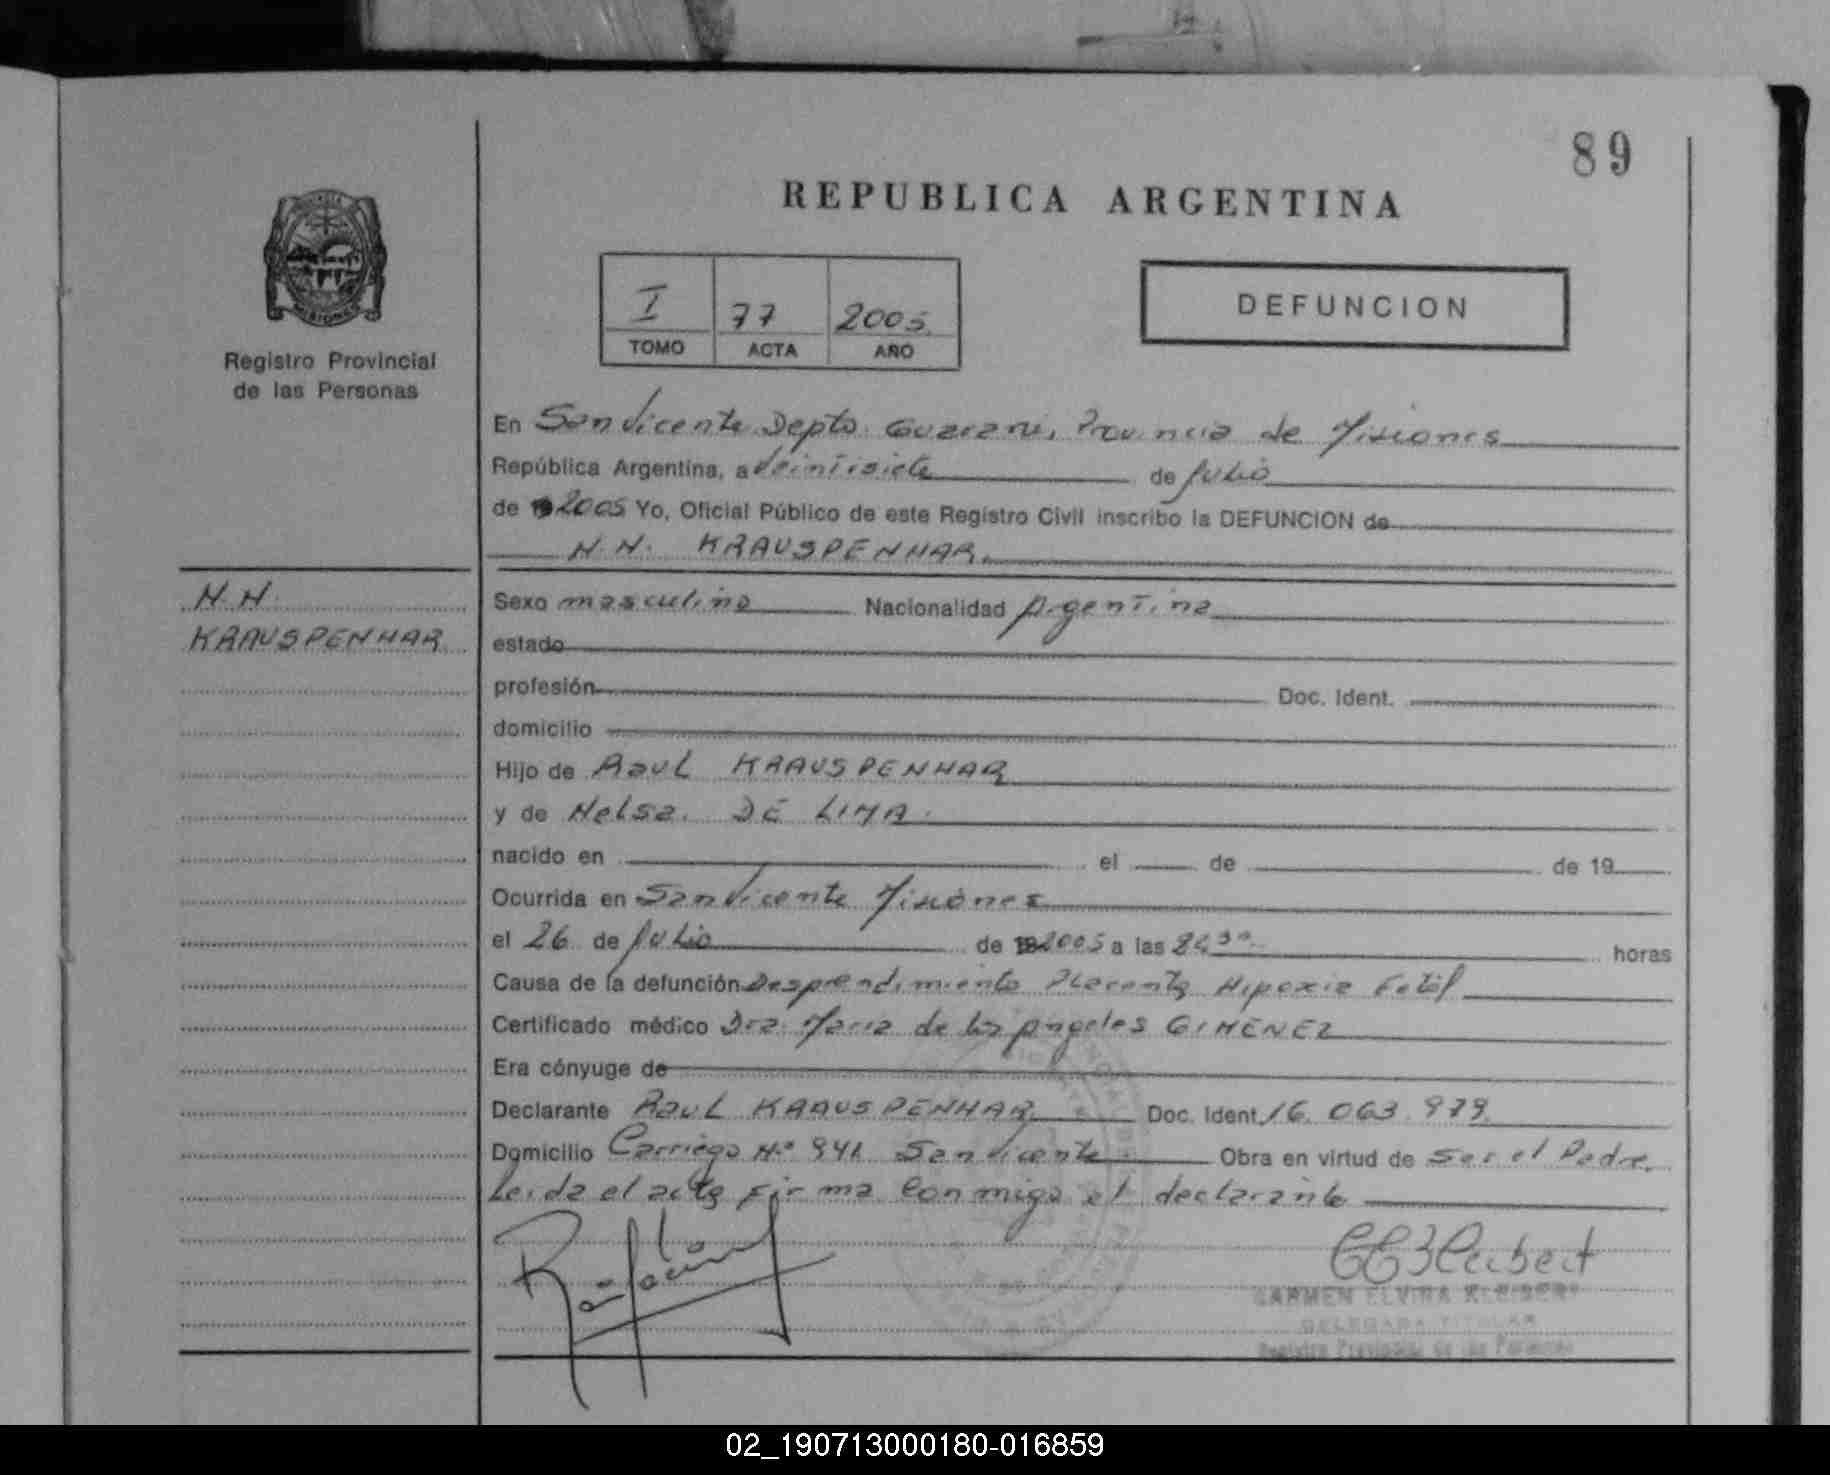 89
REPUBLICA ARGENTINA
MISIONES
Registro Provincial
de las Personas
I 77 2005
TOMO ACTA AÑO
DEFUNCION
En San Vicente Depto. Guarani, Provincia de Misiones
República Argentina, a veintisiete de Julio
de 2005 Yo, Oficial Público de este Registro Civil inscribo la DEFUNCION de
N.N. KRAUSPENHAR.
N.N.
KRAUSPENHAR
Sexo masculino Nacionalidad Argentina
estado
profesión Doc. Ident.
domicilio
Hijo de Raul KRAUSPENHAR
y de Nelsa. DE LIMA.
nacido en el de de 19
Ocurrida en San Vicente Misiones
el 26 de Julio de 2005 a las horas
Causa de la defunción Desprendimiento Placenta Hipoxia Fetal
Certificado médico Dra. Maria de los Angeles GIMENEZ
Era cónyuge de
Declarante Raul KRAUSPENHAR Doc. Ident. 16.063.979.
Domicilio Carriego N.º 941 San Vicente Obra en virtud de Ser el Padre.
Leida el acta firma conmigo el declarante
CARMEN ELVIRA KLEIBERT
DELEGADA TITULAR
Registro Provincial de las Personas
02_190713000180-016859